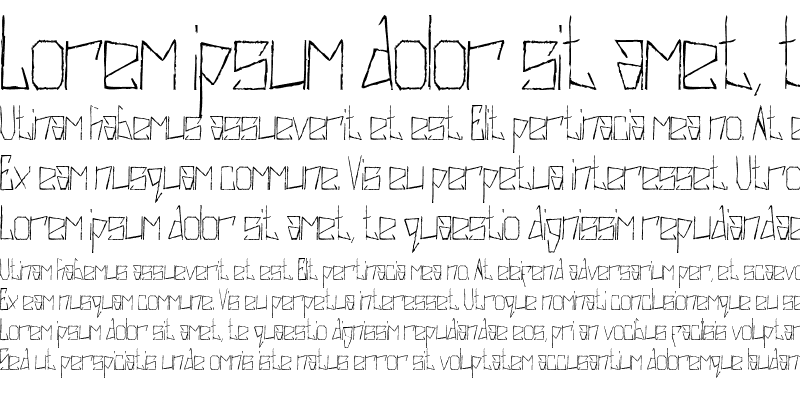 Lorem ipsum dolor sit amet, t
Utinam habemus assueverit et est. Elit pertinacia mea no. At e
Ex eam nusquam commune. Vis eu perpetua interesset. Utro
Lorem ipsum dolor sit amet, te quaestio dignissim repudiandae
Utinam habemus assueverit et est. Elit pertinacia mea no. At eleifend adversarium per, et scaevo
Ex eam nusquam commune. Vis eu perpetua interesset. Utroque nominati conclusionemque eu se
Lorem ipsum dolor sit amet, te quaestio dignissim repudiandae eos, pri an vocibus facilisis voluptari
Sed ut perspiciatis unde omnis iste natus error sit voluptatem accusantium doloremque laudan